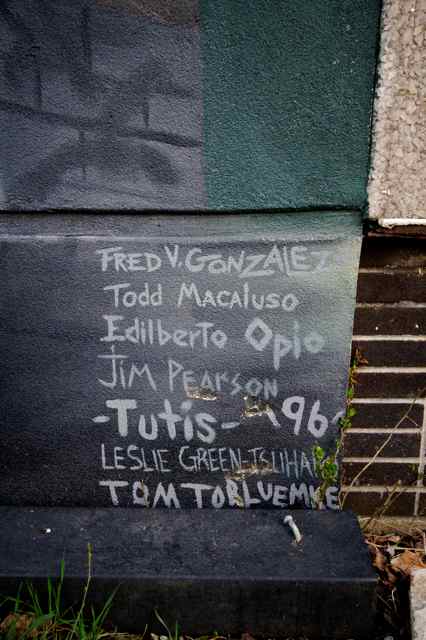 FRED V. GONZALEZ
Todd Macaluso
Edilberto Opio
JIM PEARSON
-Tutis- 96
LESLIE GREEN-TSUHA
TOM TORLUEMKE